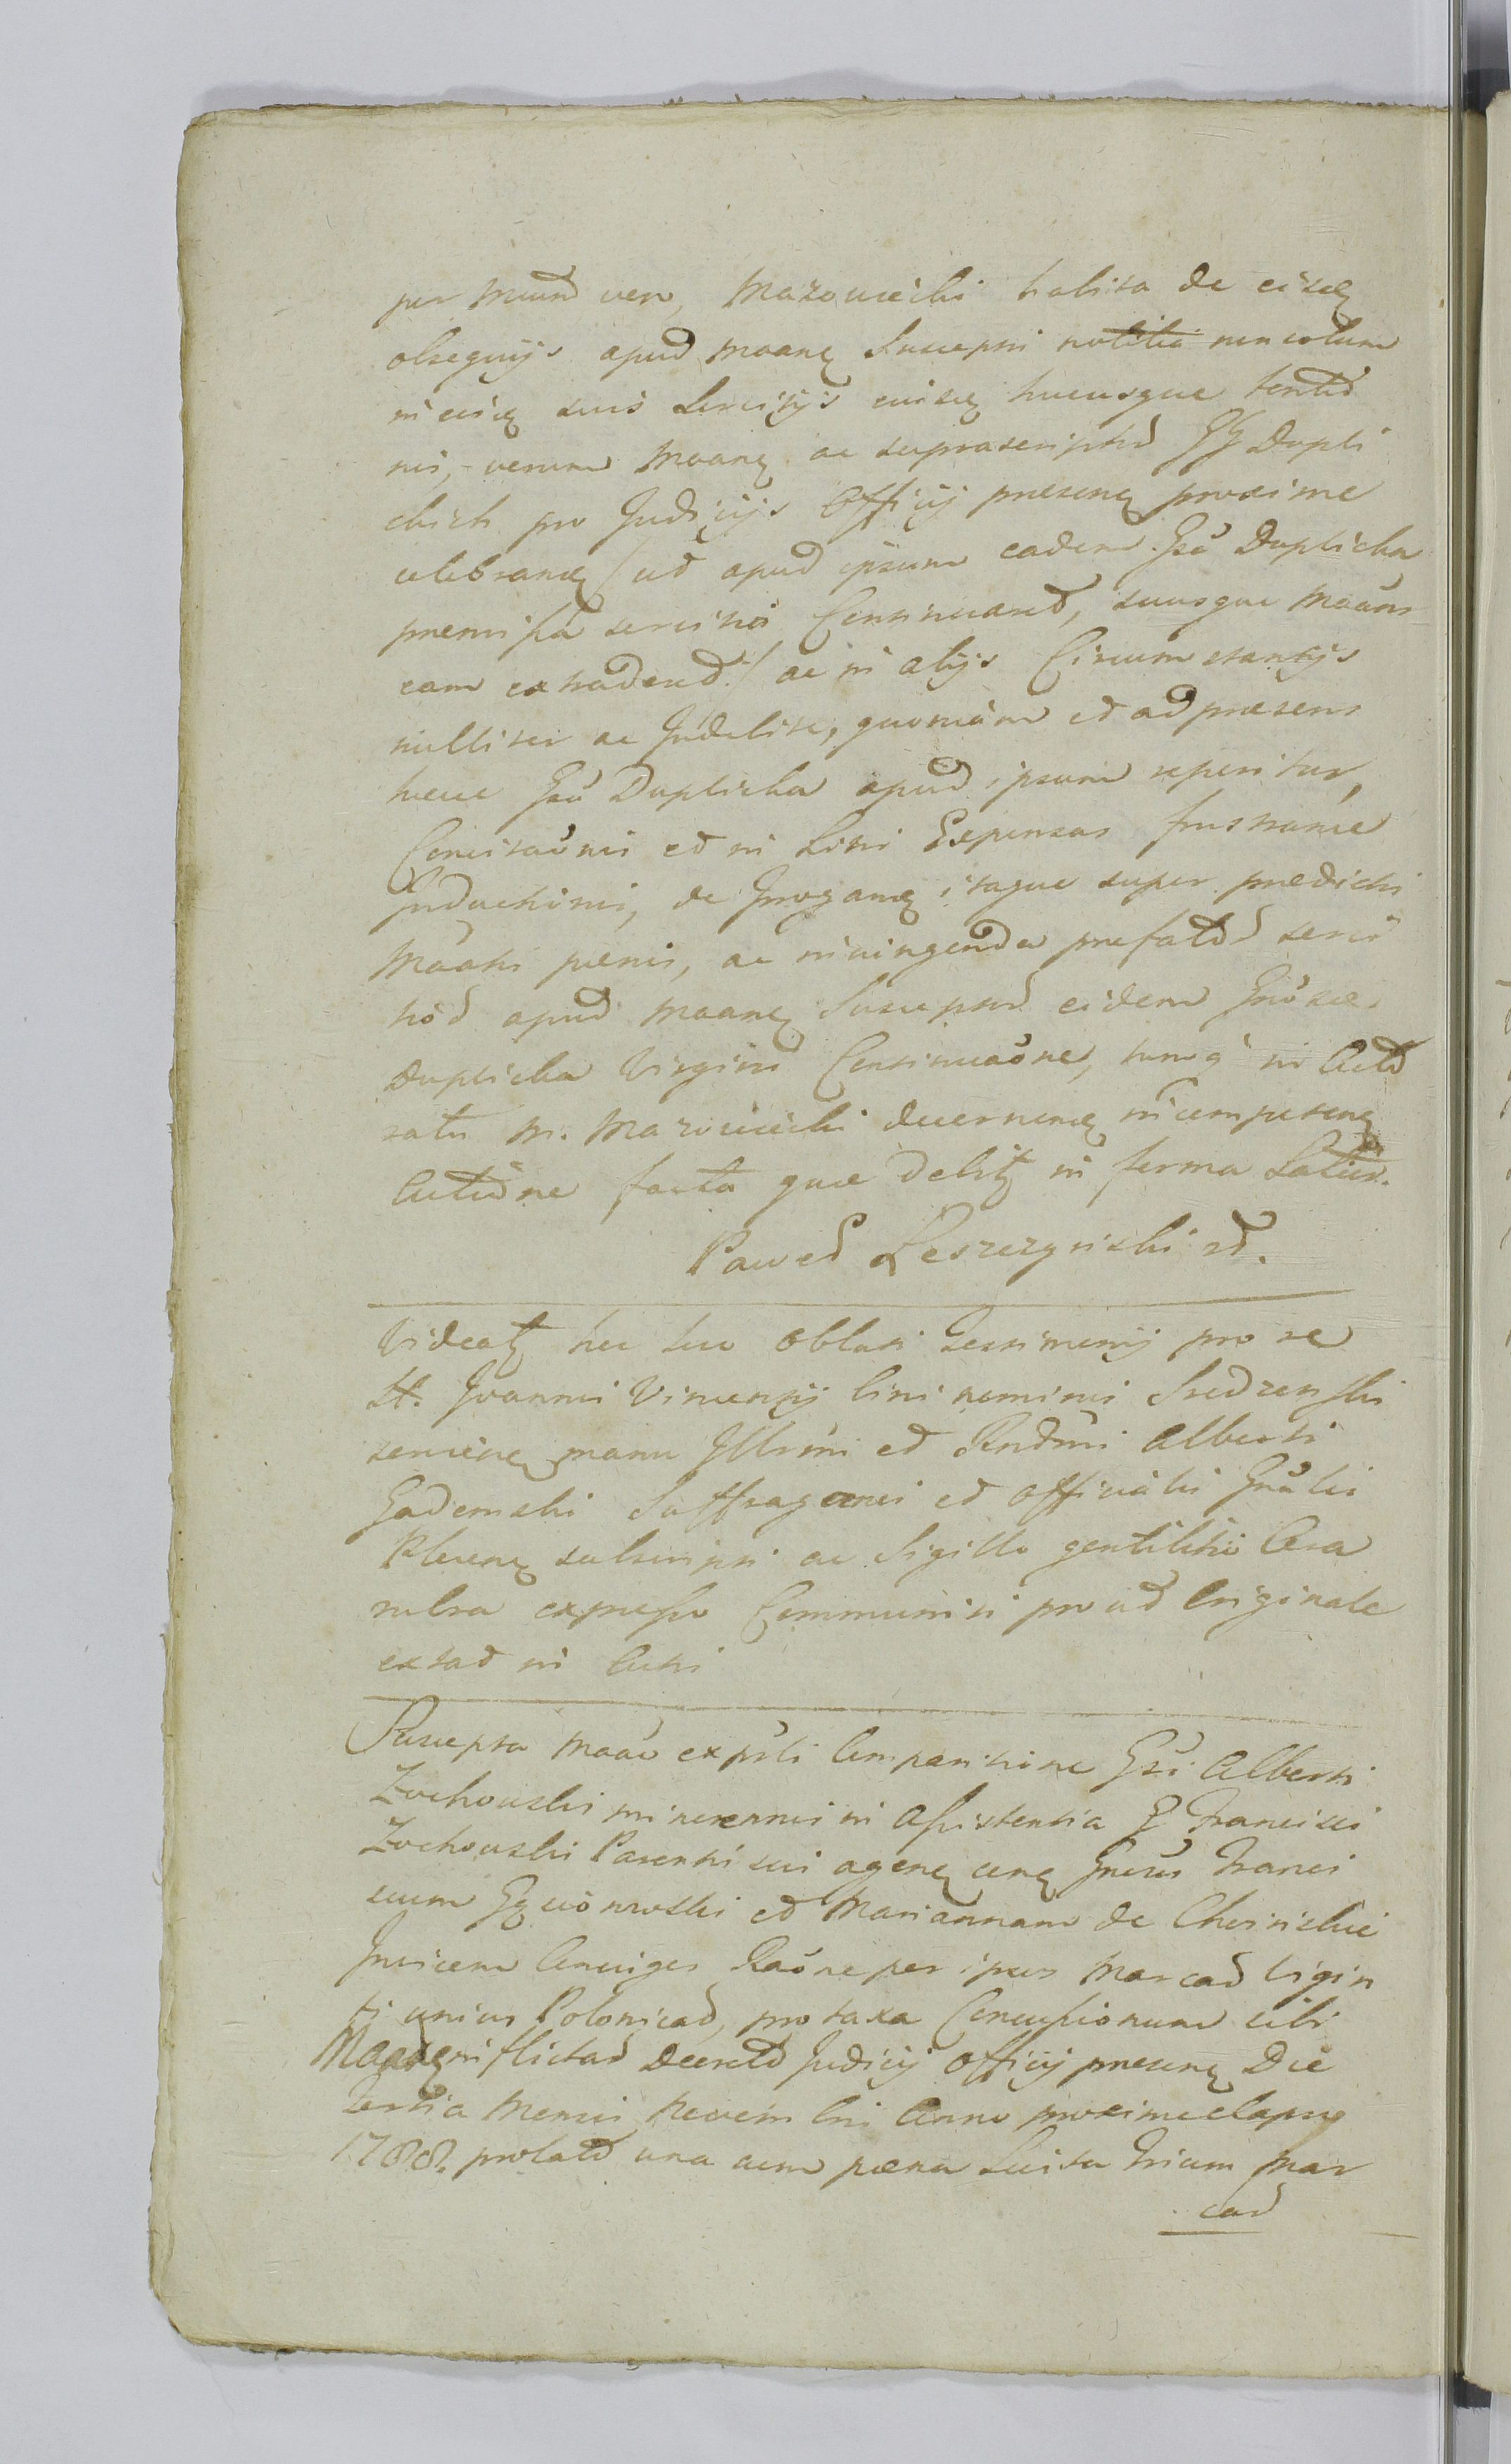 per Mund vero, Mazowiecki habita de eisq
obsequijs apud moanę Suscepti notitia non solum
in eisę suis Servitijs eaisę hucusque tentđ
nis, verum Moanę ac suprascriptđ GG Dupli
chich pro Judicijs Officij presenę proxime
celebranę / uđ apud ipsum eadem Gsa Duplicka
premissa servitia Continuaret, suusque Moans
eam extraderet / ac in alijs Circumstantijs
nulliter ac Indebite, quoniam eđ ad praesens
haec Gsa Duplicka apud ipsum reperitur,
Concitaonis eđ in Litis Expensas frustranee
Inductionis, de Irroganę itaque super praedicti
Moatis paenis, ac iniungenda prefatđ servi
tiođ apud moanę Susceptđ eidem Gnosae
Duplicka Virgini Continuaone, tumq in Actđ
ratu M. Mazowiecki decernenę incompetenę
Actione facta quae debitę in forma Latius.
Paweł Leszczynski rđ.
Videatę hic suo Oblati Testimonij pro se
St. Joannis Vincentij bini nominis Siedzenski
servienę manu Illrmi eđ Rndmi Alberti
Gadomski Suffraganei eđ Officialis Gnalis
Plocenę subscripti ac Sigillo gentilitio Cera
rubra expresso Communiti pro uđ Originale
extađ in Actis
Suscepta Moao ex psti Comparitione Gsi Alberti
Zochowski minorennis in Assistentia G Francisci
Zochowski Parentis sui agenę cenę Gnosus Franci
scum Gąsiorowski eđ Mariannam de Choinskie
Invicem Coniuges Raone per ipsos Marcađ Vigin
ti unius Polonicađ, pro taxa Concussionum sibi
Magdę inflictađ Decretđ Judicij Officij presenę Die
Tertia Mensis Novembris Anno proxime elapso
1788. prolatđ una cum paena Luita Trium Mar
cađ